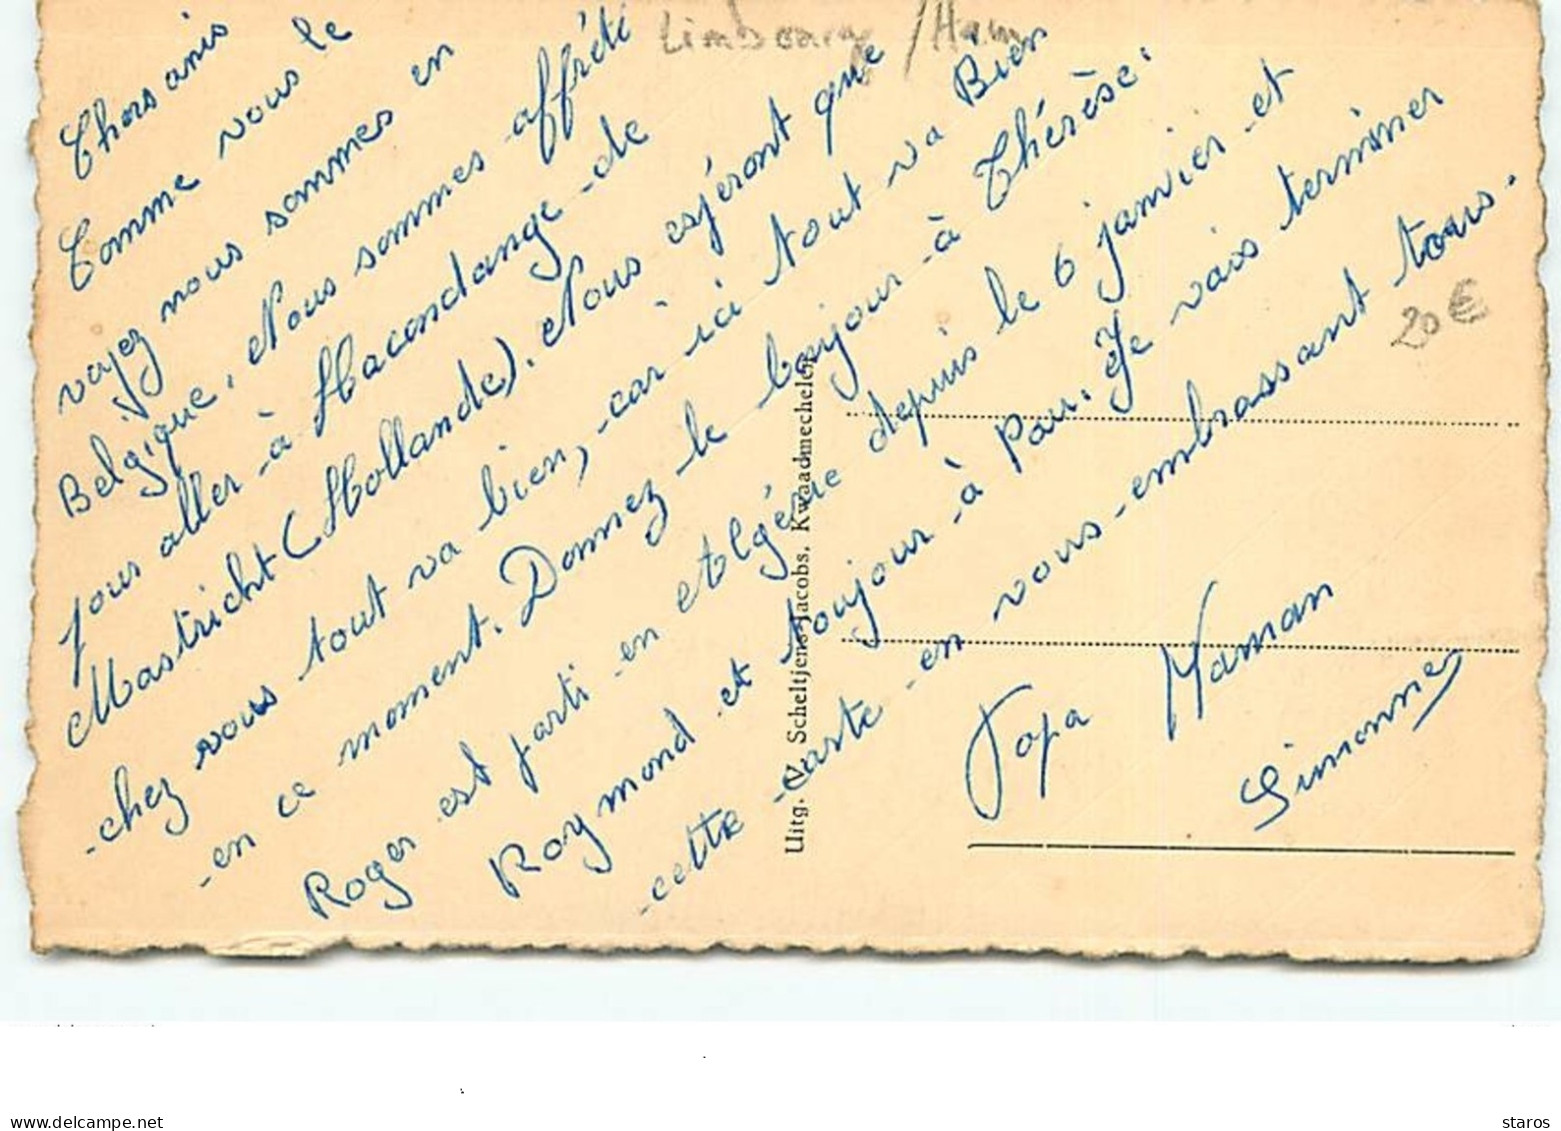 Limbourg / Ham
Chers amis
Comme vous le
voyez nous sommes en
Belgique. Nous sommes affrété
pour aller à Hacondange de
Mastricht (Hollande). Nous espéront que
chez vous tout va bien, car ici tout va Bien
en ce moment. Donnez le bonjour à Thérèse.
Roger est parti en Algérie depuis le 6 janvier et
Raymond et toujour à Pau. Je vais terminer
cette carte en vous embrassant tous.
Papa Maman
Simonne
20€
Uitg. V. Scheltjens-Jacobs, Kwaadmechelen
my-collection
staros